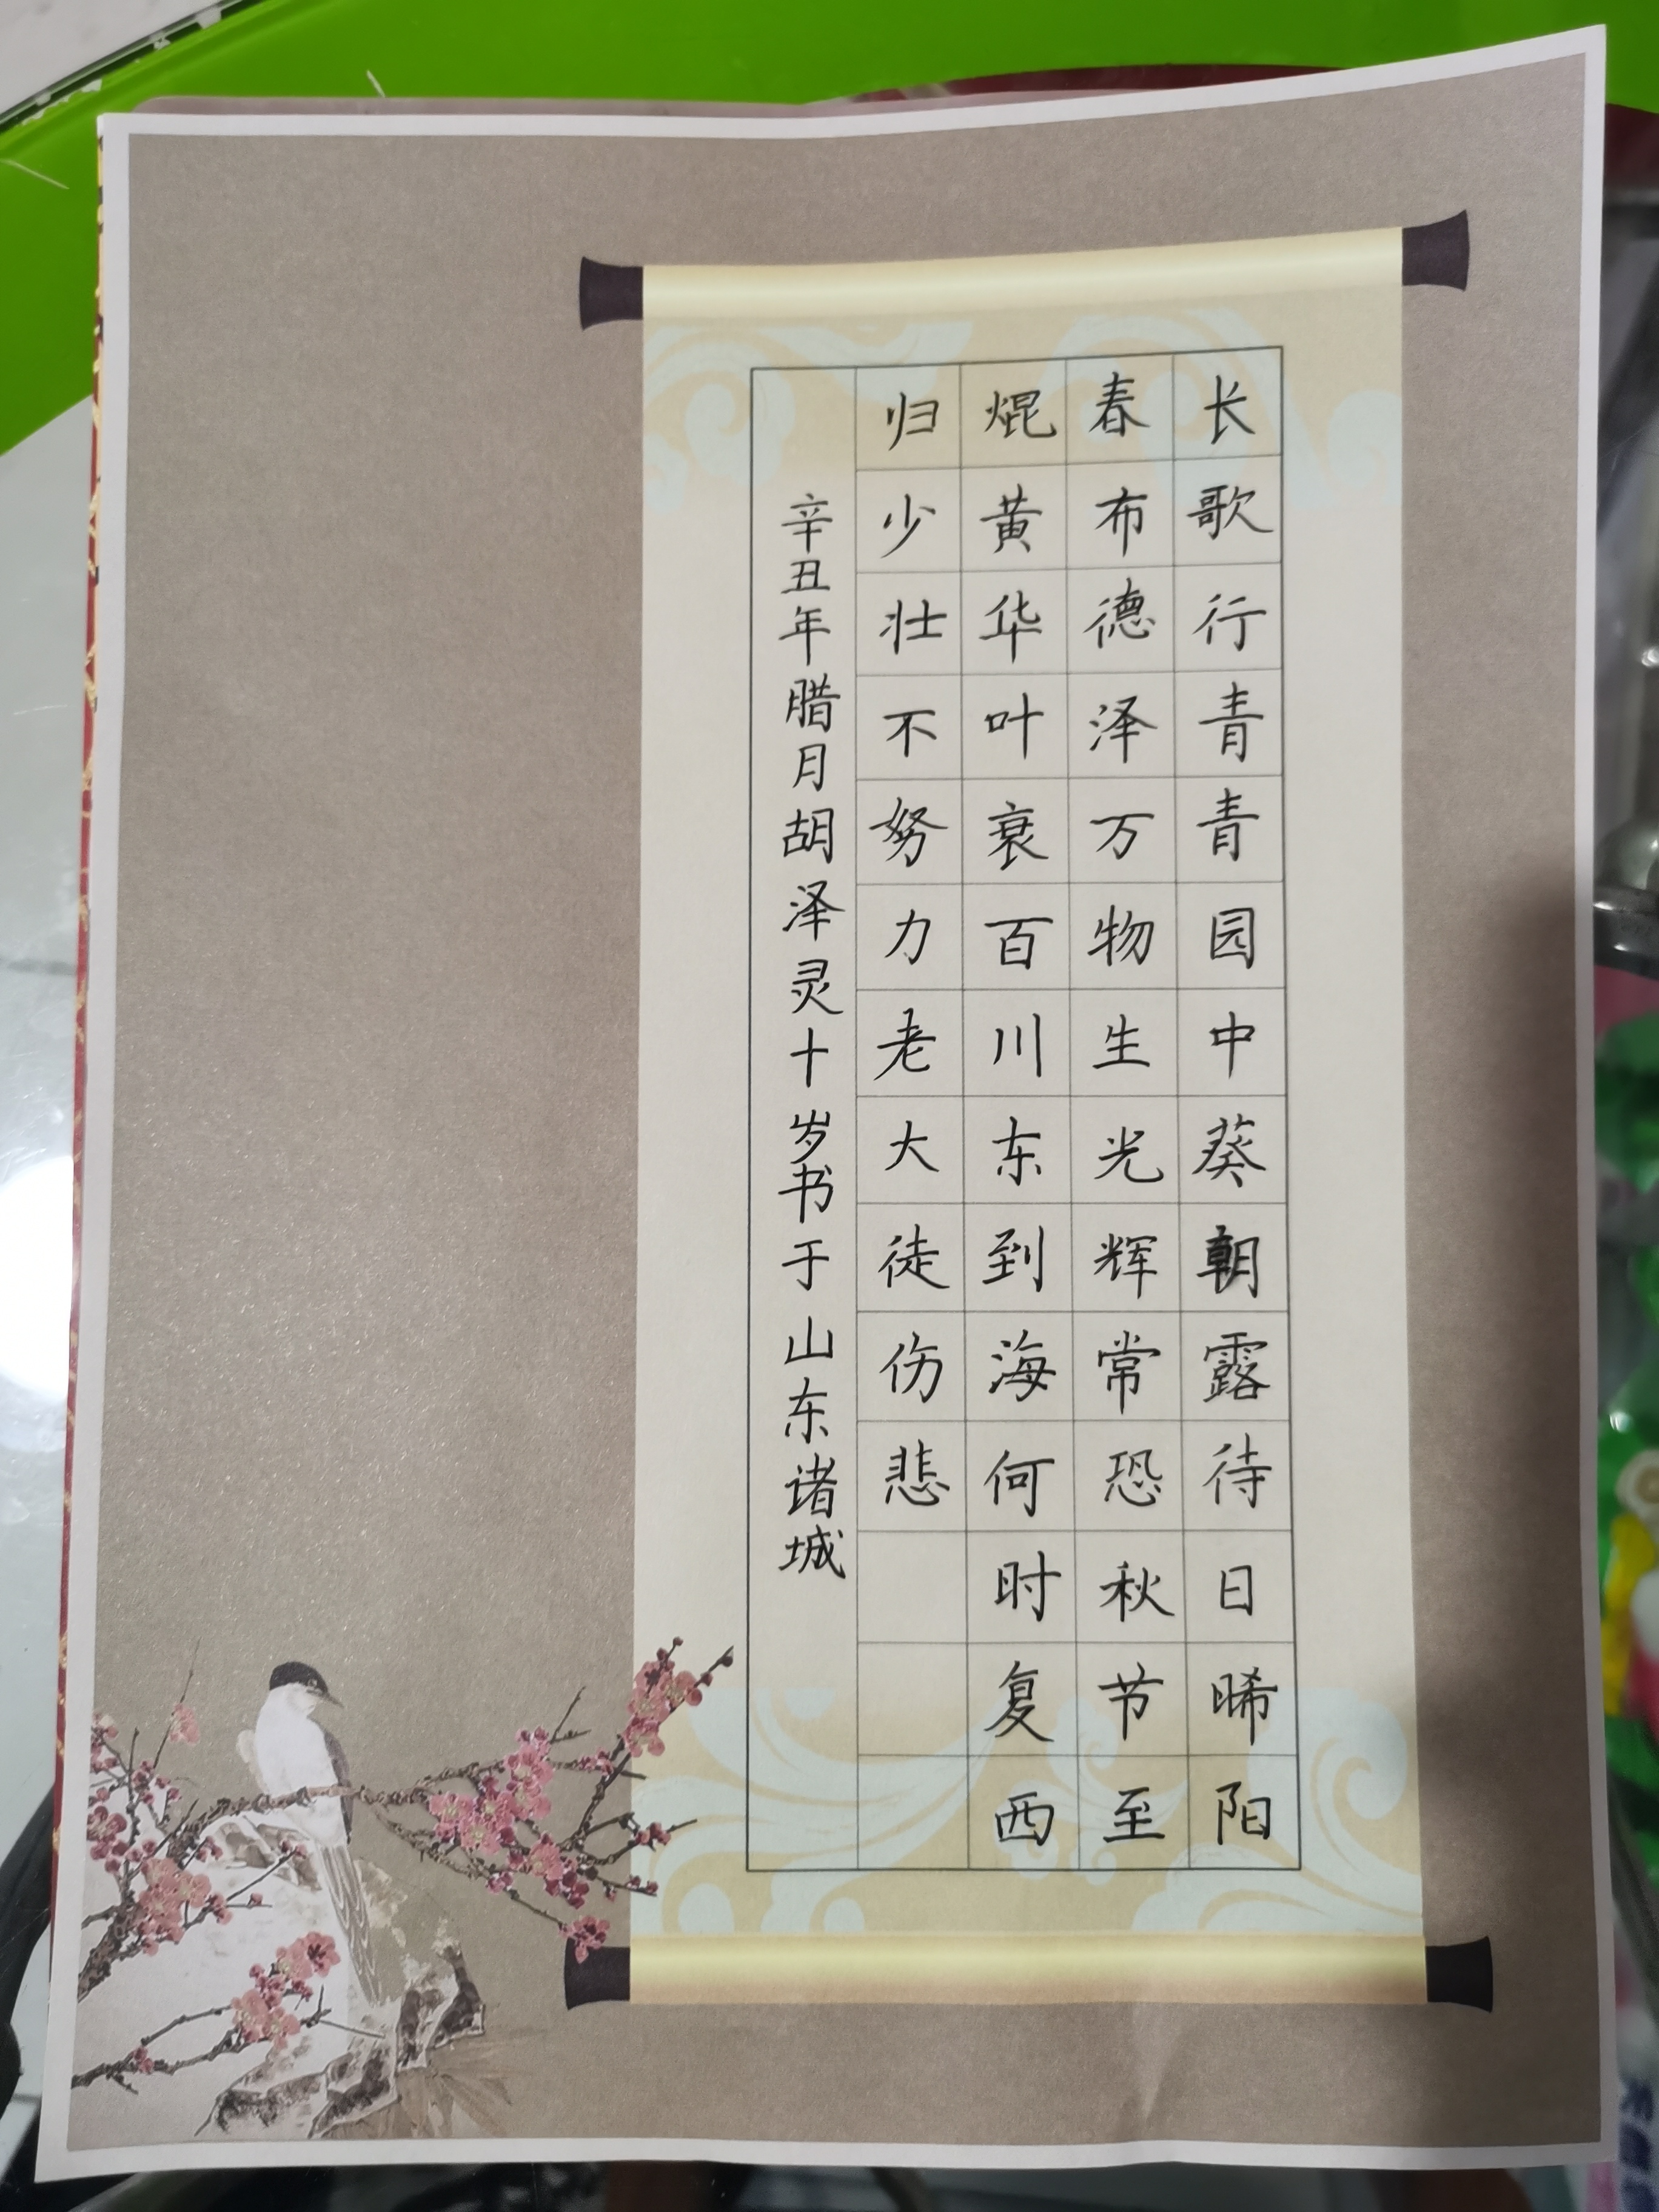 长歌行青青园中葵朝露待日晞阳
春布德泽万物生光辉常恐秋节至
焜黄华叶衰百川东到海何时复西
归少壮不努力老大徒伤悲
辛丑年腊月胡泽灵十岁书于山东诸城